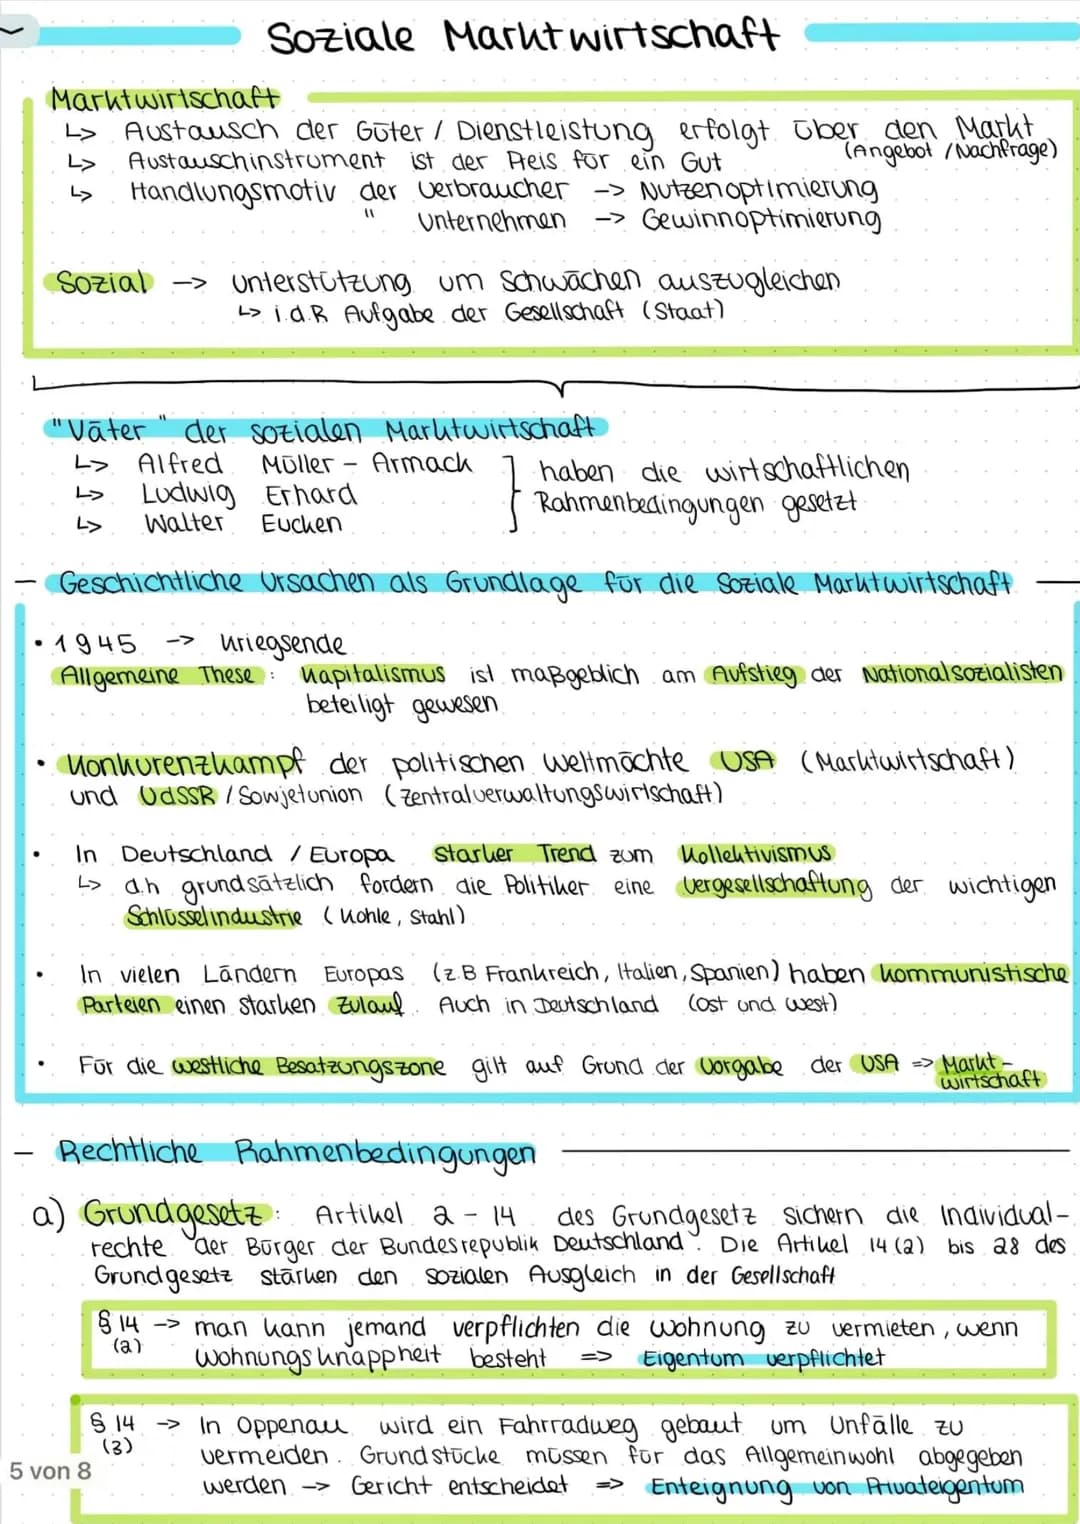 Soziale Marktwirtschaft
Marktwirtschaft
↳ Austausch der Güter / Dienstleistung erfolgt über den Markt
(Angebot / Nachfrage)
↳ Austauschinstrument ist der Preis für ein Gut
↳ Handlungsmotiv der Verbraucher -> Nutzenoptimierung
" Unternehmen -> Gewinnoptimierung
Sozial -> Unterstützung um Schwächen auszugleichen
↳ i.d.R Aufgabe der Gesellschaft (Staat)
"Väter" der sozialen Marktwirtschaft
↳ Alfred Müller - Armack
↳ Ludwig Erhard
↳ Walter Eucken
} haben die wirtschaftlichen
Rahmenbedingungen gesetzt
- Geschichtliche Ursachen als Grundlage für die Soziale Marktwirtschaft
• 1945 -> Kriegsende
Allgemeine These: Kapitalismus ist maßgeblich am Aufstieg der Nationalsozialisten
beteiligt gewesen
• Konkurenzkampf der politischen Weltmächte USA (Marktwirtschaft)
und UdSSR / Sowjetunion (Zentralverwaltungswirtschaft)
• In Deutschland / Europa starker Trend zum Kollektivismus
↳ d.h grundsätzlich fordern die Politiker eine Vergesellschaftung der wichtigen
Schlüsselindustrie (Kohle, Stahl)
• In vielen Ländern Europas (z.B Frankreich, Italien, Spanien) haben kommunistische
Parteien einen starken Zulauf. Auch in Deutschland (Ost und West)
• Für die westliche Besatzungszone gilt auf Grund der Vorgabe der USA => Markt-
wirtschaft
- Rechtliche Rahmenbedingungen
a) Grundgesetz: Artikel 2 - 14 des Grundgesetz sichern die Individual-
rechte der Bürger der Bundesrepublik Deutschland. Die Artikel 14 (2) bis 28 des
Grundgesetz stärken den sozialen Ausgleich in der Gesellschaft
§ 14 -> man kann jemand verpflichten die Wohnung zu vermieten, wenn
(2) Wohnungsknappheit besteht => Eigentum verpflichtet
§ 14 -> In Oppenau wird ein Fahrradweg gebaut um Unfälle zu
(3) vermeiden. Grundstücke müssen für das Allgemeinwohl abgegeben
werden -> Gericht entscheidet => Enteignung von Privateigentum
5 von 8